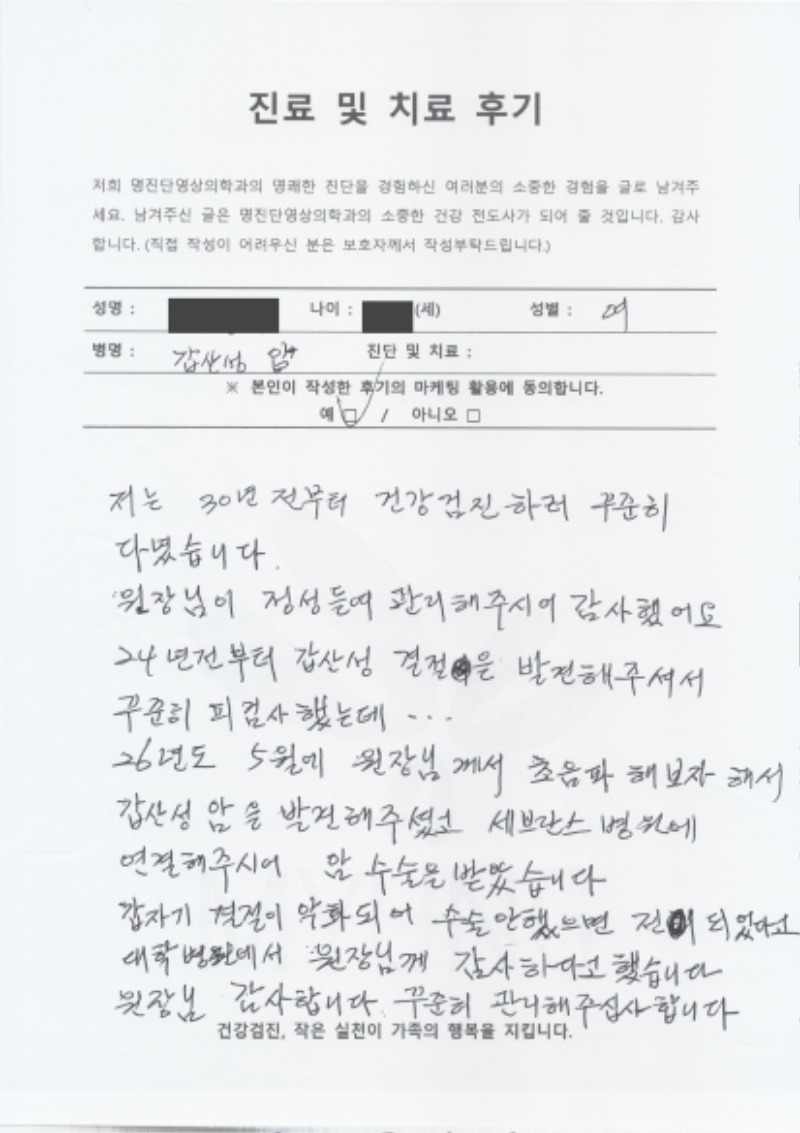 진료 및 치료 후기
저희 명진단영상의학과의 명쾌한 진단을 경험하신 여러분의 소중한 경험을 글로 남겨주
세요. 남겨주신 글은 명진단영상의학과의 소중한 건강 전도사가 되어 줄 것입니다. 감사
합니다. (직접 작성이 어려우신 분은 보호자께서 작성부탁드립니다.)
성명 : 나이 : (세) 성별 : 여
병명 : 갑산성 암 진단 및 치료 :
※ 본인이 작성한 후기의 마케팅 활용에 동의합니다.
예 □ / 아니오 □
저는 30년 전부터 건강검진 하러 꾸준히
다녔습니다.
원장님이 정성들여 관리해주시어 감사했어요
24년전부터 갑산성 결절은 발견해주셔서
꾸준히 피검사 했는데 ...
26년도 5월에 원장님께서 초음파 해보자 해서
갑산성 암을 발견해주셨고 세브란스 병원에
연결해주시어 암 수술을 받았습니다
갑자기 결절이 악화되어 수술 안했으면 전이 되었다고
대학병원에서 원장님께 감사하다고 했습니다
원장님 감사합니다. 꾸준히 관리해주십사 합니다
건강검진, 작은 실천이 가족의 행복을 지킵니다.